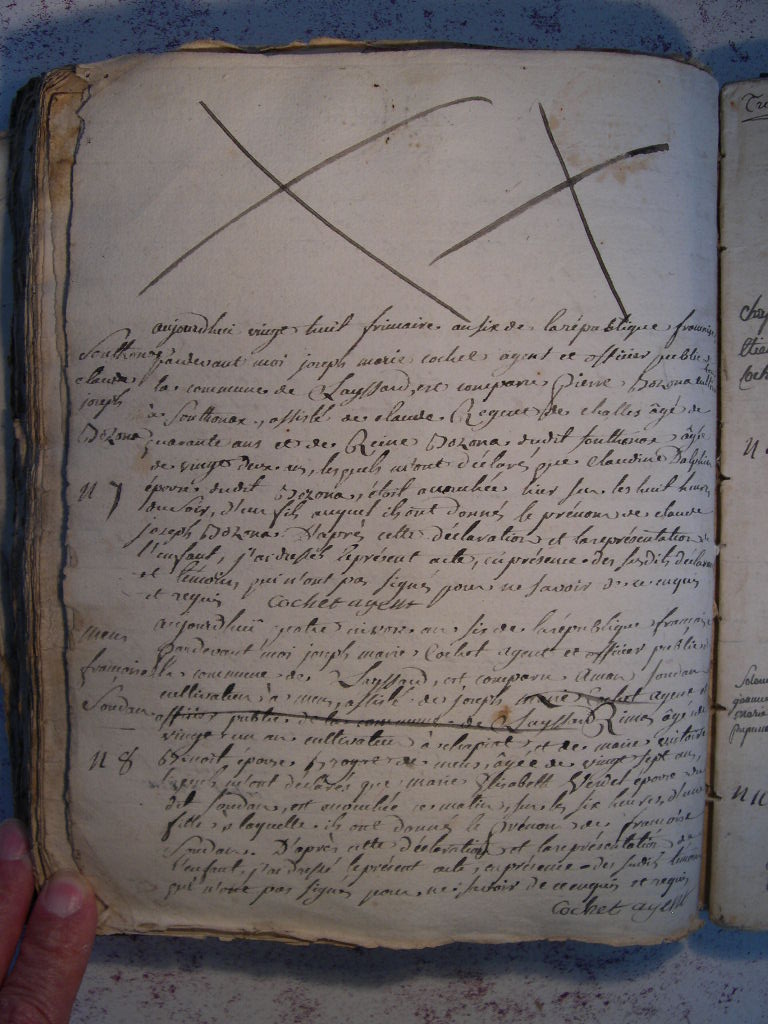 aujourdhui vingt huit frimaire an six de la république française
pardevant moi joseph marie cochet agent et officier public de
la commune de Layssard, est comparu Pierre Bozona
à Southonax, assisté de claude Regent de challes âgé de
quarante ans et de Reine Bozona dudit Southonax âgée
de vingt deux ans, lesquels m'ont déclaré que claudine Dalphin
épouse dudit Bozona, étoit accouchée hier sur les huit heures
du soir, d'un fils auquel ils ont donné le prénom de claude
joseph Bozona. D'après cette déclaration et la représentation de
l'enfant, j'ai dressé le présent acte, en présence des susdits déclarant
et témoins, qui n'ont pas signés pour ne savoir de ce enquis
et requis Cochet agent
Southonax
claude
joseph
Bozona
n 7
aujourdhui quatre nivose an six de la république française
pardevant moi joseph marie Cochet agent et officier public
la commune de Layssard, est comparu Soudan
cultivateur à mens, assisté de joseph marie Cochet agent
officier public de la commune de Layssard âgé de
vingt un an cultivateur à et de marie
Benoit, épouse de mens, âgée de vingt sept ans,
lesquels m'ont déclarés que marie Elisabeth épouse du
dit Soudan, est accouchée ce matin, sur les six heures, d'une
fille à laquelle ils ont donné le Prénom de françoise
Soudan. D'après cette déclaration et la représentation de
l'enfant, j'ai dressé le présent acte, en présence des susdits témoins
qui n'ont pas signés pour ne savoir de ce enquis et requis
Cochet agent
mens
françoise
Soudan
n 8
n
n 10